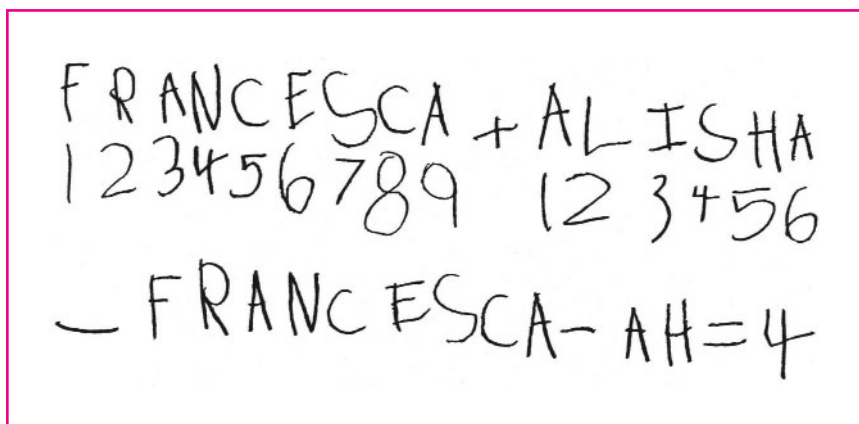 FRANCESCA + ALISHA
123456789 123456
- FRANCESCA - AH = 4